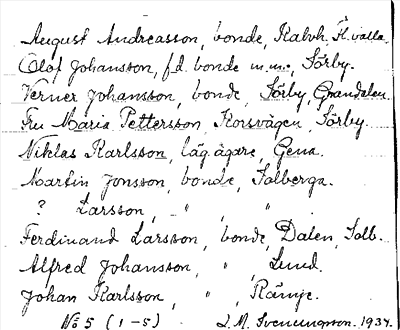 August Andreasson, bonde, Kalvh. K. valla.
Olof Johansson, f.d. bonde m.m., Sörby.
Verner Johansson, bonde, Sörby, Grandalen.
Fru Maria Pettersson Korsvägen, Sörby.
Niklas Karlsson, läg. ägare, Gena.
Martin Jonsson, bonde, Solberga.
? Larsson, " "
Ferdinand Larsson, bonde, Dalen, Solb.
Alfred Johansson, " Lund.
Johan Karlsson, " Rämje.
No 5 (1-5) L.M. Svenungsson. 1934.